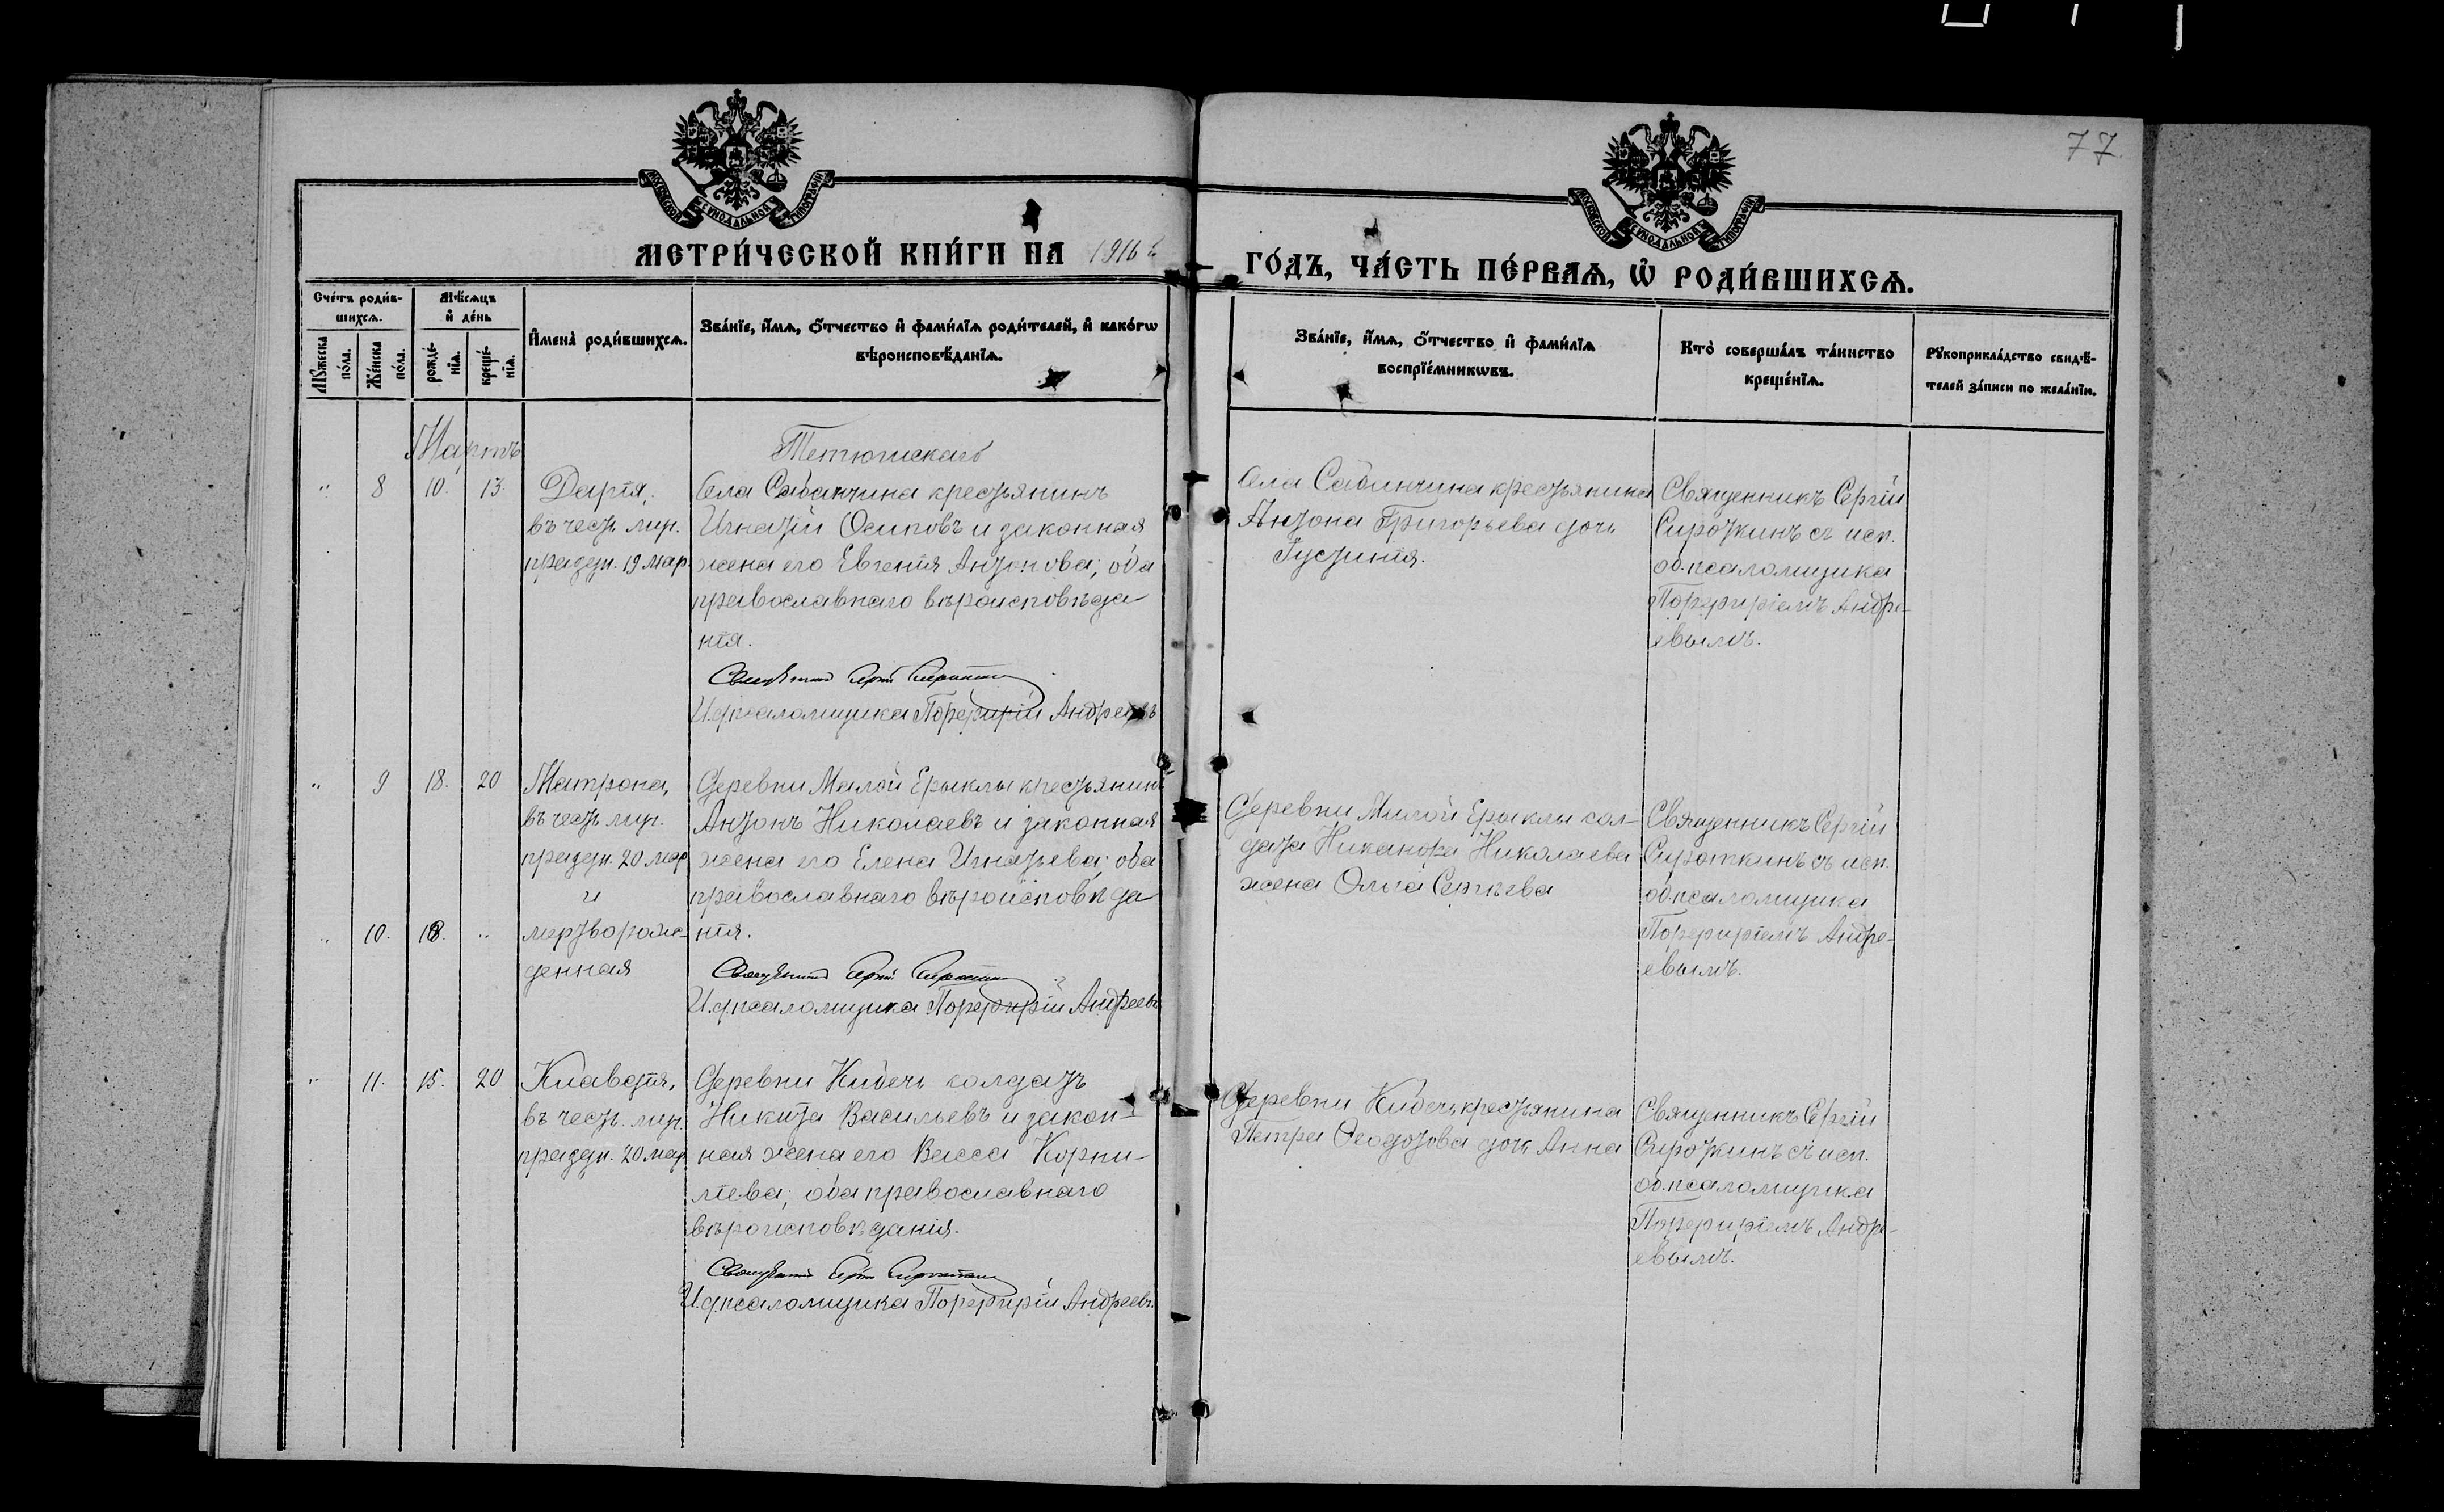 77
МОСКОВСКОЙ СѴНОДАЛЬНОЙ ТИПОГРАФІИ
МОСКОВСКОЙ СѴНОДАЛЬНОЙ ТИПОГРАФІИ
МЕТРИ́ЧЕСКОЙ КНИ́ГИ НА 1916 г
ГО́ДЪ, ЧА́СТЬ ПЕ́РВАѦ, Ѡ҆ РОДИ́ВШИХСѦ.
Сче́тъ роди́в-
шихсѧ.
Мѣ́сѧцъ
и҆ де́нь
Мꙋжеска
по́ла.
Же́нска
по́ла.
рожде́-
нїѧ.
креще́-
нїѧ.
И҆мена̀ роди́вшихсѧ.
Зва́нїе, и҆́мѧ, ѻ҆́тчество и҆ фами́лїѧ роди́телей, и҆ како́гѡ
вѣроисповѣ́данїѧ.
Зва́нїе, и҆́мѧ, ѻ҆́тчество и҆ фами́лїѧ
воспрїе́мникѡвъ.
Кто̀ соверша́лъ та́инство
креще́нїѧ.
Рꙋкоприкла́дство свидѣ́-
телей за́писи по жела́нїю.
Мартъ
Тетюшскаго
" 8 10. 13. Дарія,
въ честь муч.
празди. 19 мар.
Села Сабанчина крестьянинъ
Игнатій Осиповъ и законная
жена его Евгенія Антонова; оба
православнаго вѣроисповѣда
нія.
Священникъ Сергій Сироткинъ
И.д.псаломщика Порфирій Андреевъ
Села Сабанчина крестьянина
Антона Григорьева дочь
Іустинія.
Священникъ Сергій
Сироткинъ съ исп.
об.псаломщика
Порфиріемъ Андре-
евымъ.
" 9 18. 20 Матрона,
въ честь муч.
праздн. 20 мар
и
" 10. 18. " мертворож-
денная
Деревни Малой Ерыклы крестьянинъ
Антонъ Николаевъ и законная
жена его Елена Игнатьева; оба
православнаго вѣроисповѣда
нія.
Священникъ Сергій Сироткинъ
И.д.псаломщика Порфирій Андреевъ
Деревни Малой Ерыклы сол-
дата Никанора Николаева
жена Ольга Сергѣева
Священникъ Сергій
Сироткинъ съ исп.
об.псаломщика
Порфиріемъ Андре-
евымъ.
" 11. 15. 20 Клавдія,
въ честь муч.
праздн. 20 мар
Деревни Кибечь солдатъ
Никита Васильевъ и закон-
ная жена его Васса Корни-
ліева; оба православнаго
вѣроисповѣданія.
Священникъ Сергій Сироткинъ
И.д.псаломщика Порфирій Андреевъ.
Деревни Кибечь крестьянина
Петра Ѳеодотова дочь Анна
Священникъ Сергій
Сироткинъ съ исп.
об.псаломщика
Порфиріемъ Андре-
евымъ.